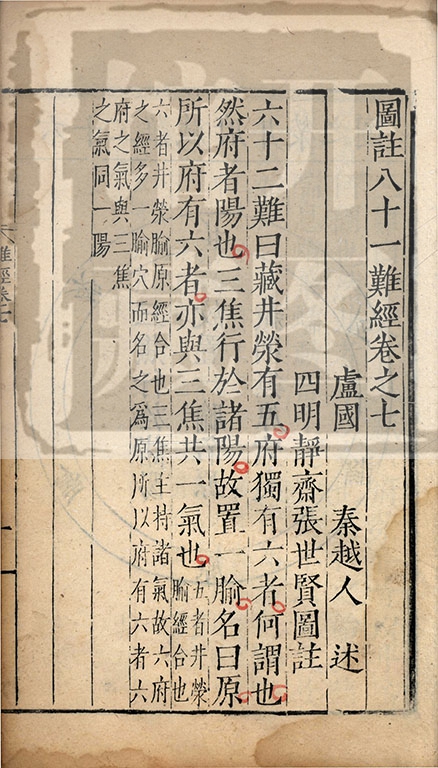 圖註八十一難經卷之七
盧國 秦越人 述
四明靜齋張世賢圖註
六十二難曰藏井滎有五府獨有六者何謂也
然府者陽也三焦行於諸陽故置一腧名曰原
所以府有六者亦與三焦共一氣也
五者井滎
腧經合也
六者井滎腧原經合也三焦主持諸氣故六府
之經多一腧穴而名之為原所以府有六者六
府之氣與三焦
之氣同一陽
難經卷七
一